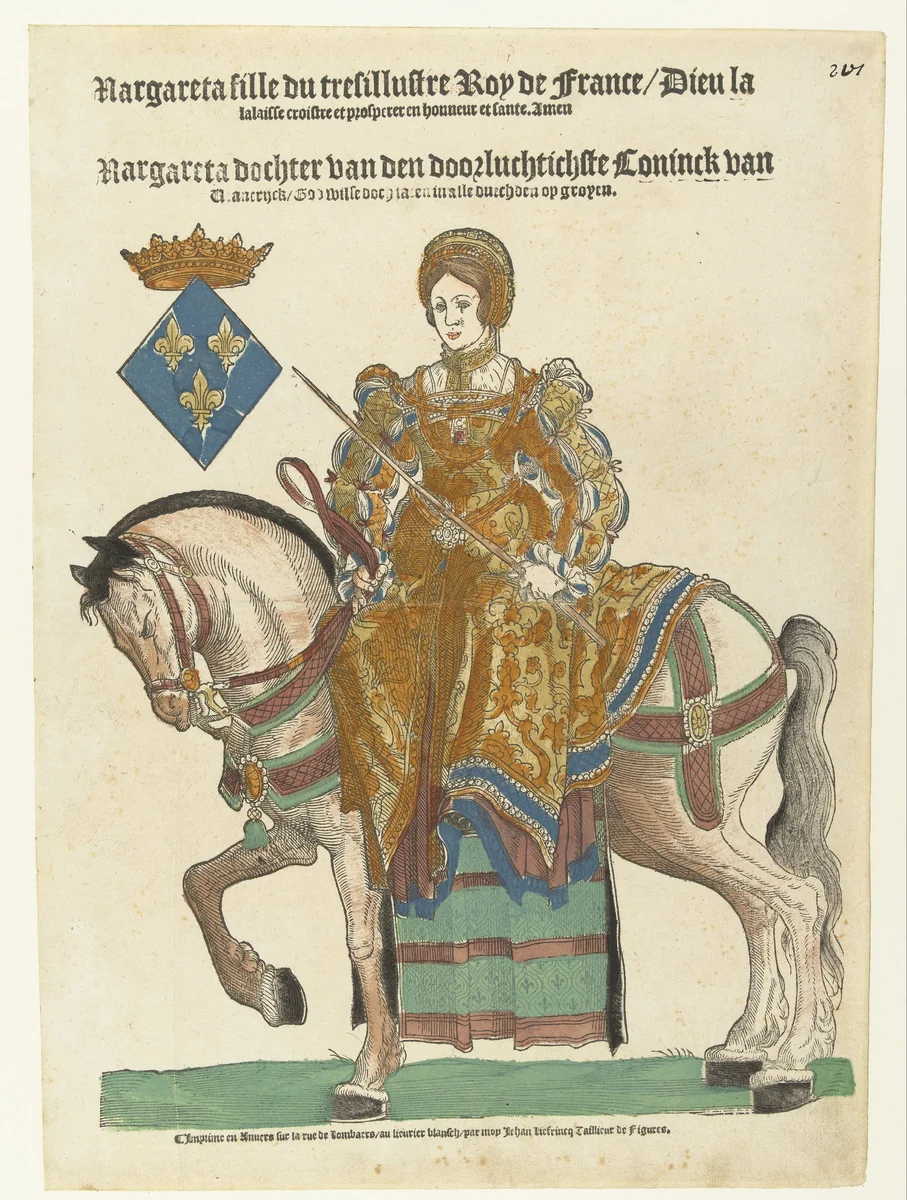 Margareta fille du tresillustre Roy de France/Dieu la
lalaisse croistre et prosperer en honneur et sante. Amen
201
Margareta dochter van den doorluchtichste Coninck van
Vrancryck/God wilse doch laten in alle duechden op groyen.
Imprime en Anvers sur la rue de Lombaers/au lieurier blansch/par moy Jehan Liefrincq Taillieur de Figures.